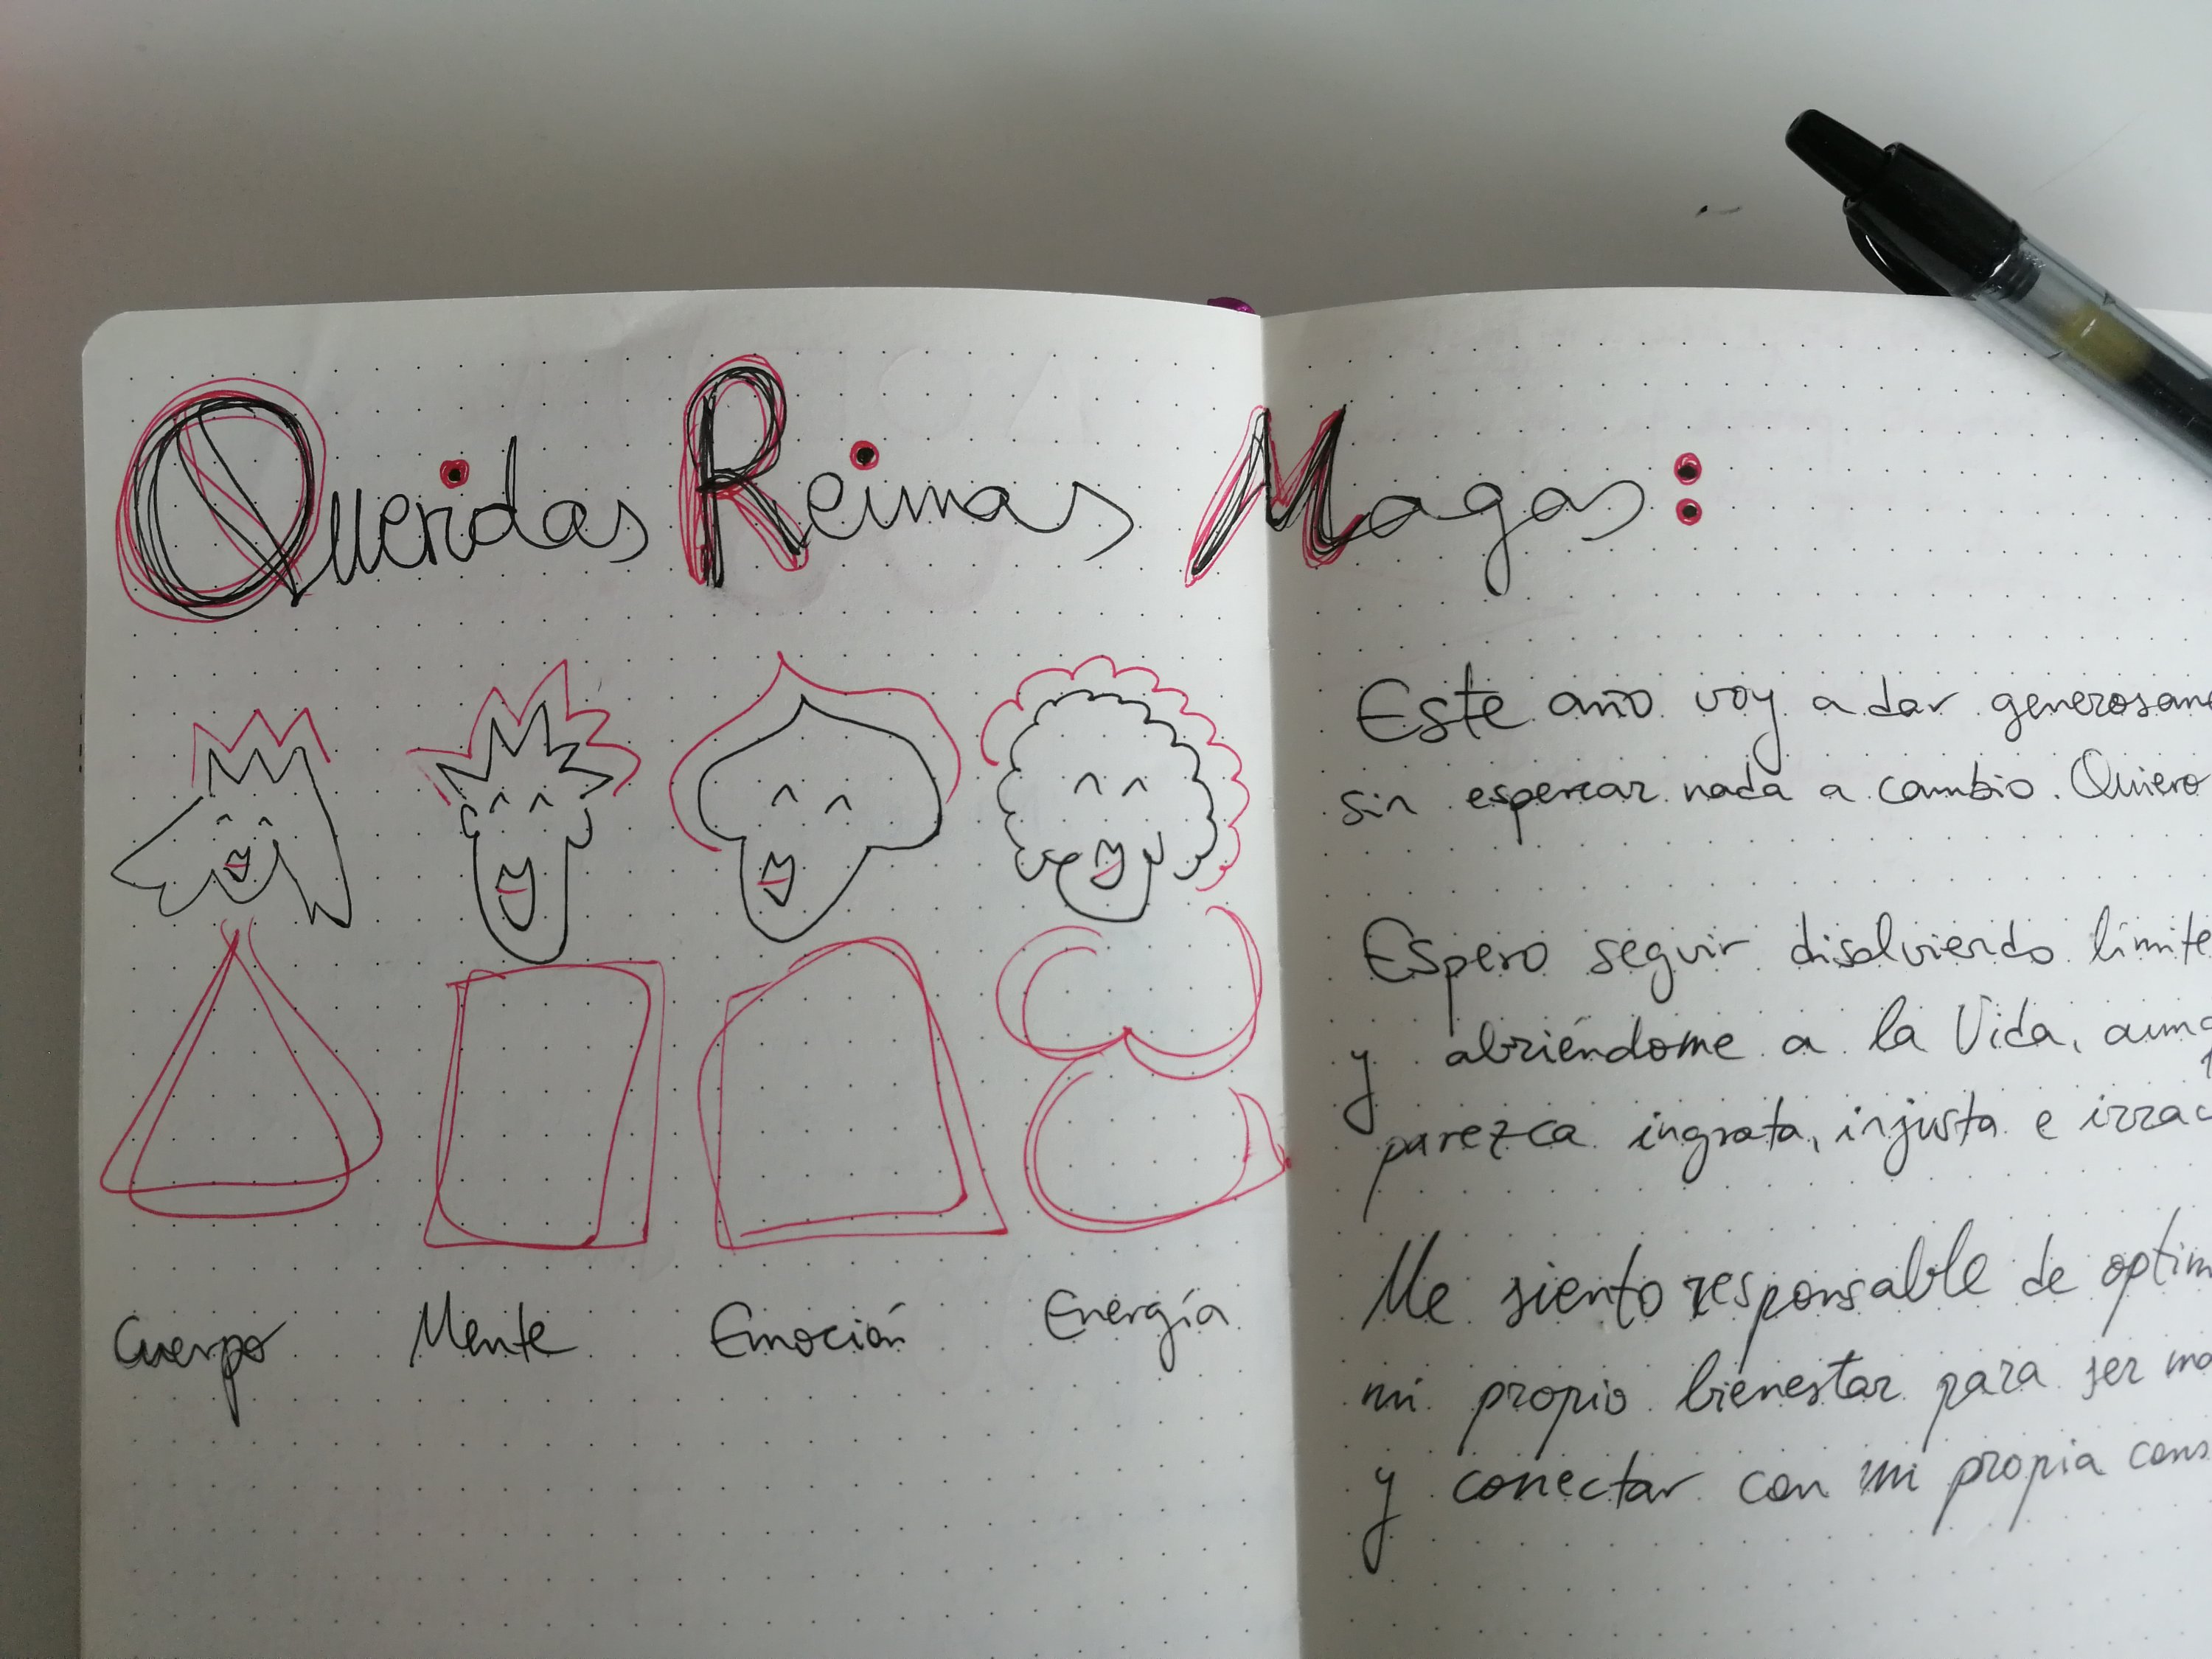 Queridas Reinas Magas:
Cuerpo Mente Emoción Energía
Este año voy a dar generosame
sin esperar nada a cambio. Quiero
Espero seguir disolviendo límite
y abriéndome a la Vida, aunq
parezca ingrata, injusta e irrac
Me siento responsable de optim
mi propio bienestar para ser
y conectar con mi propia cons